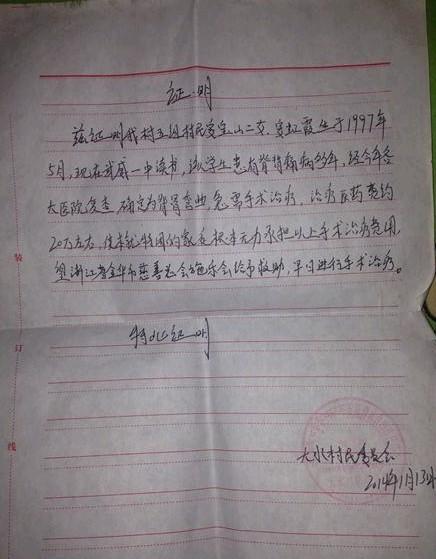 证明
兹证明我村五组村民贾宝山二女,贾虹霞生于1997年
5月,现在武威一中读书,该学生患有脊背痛病多年,经今年各
大医院复查,确定为脊骨弯曲急需手术治疗,治疗医药费约
20万左右,使本就特困的家庭根本无力承担以上手术治疗费用,
望浙江省金华市慈善总会施乐会给予救助,早日进行手术治疗。
特此证明
大水村民委员会
2014年1月13日
装
订
线